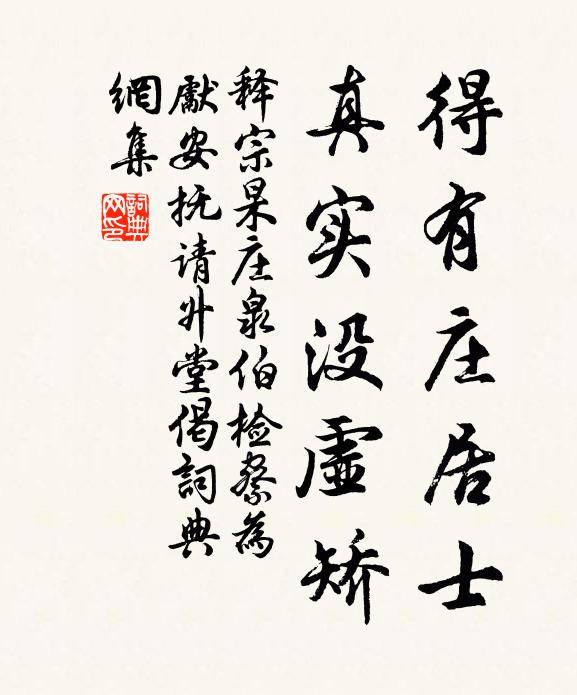 得有庄居士
真实没虚矫
释宗杲庄泉伯检察為
獻安抚请升堂偈詞典
網集
詞典网印